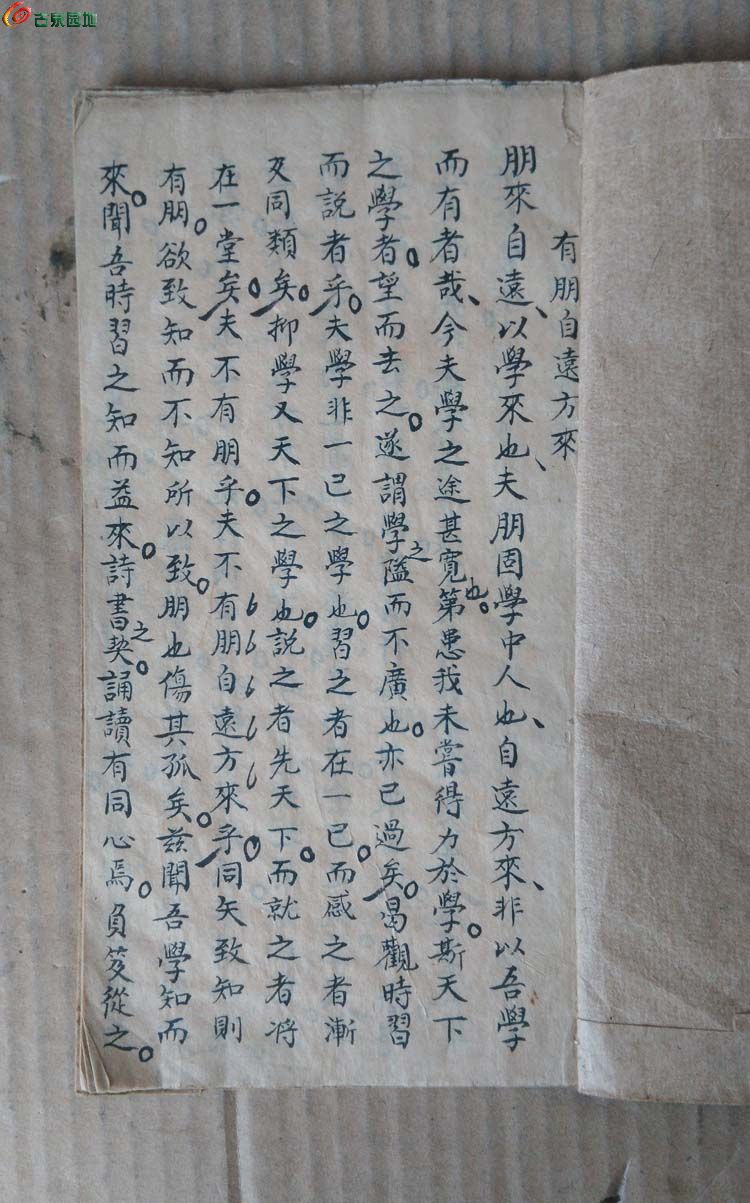 古泉园地
有朋自遠方來
朋來自遠、以學來也、夫朋固學中人也、自遠方來、非以吾學
而有者哉、今夫學之途甚寬也。第患我未嘗得力於學。斯天下
之學者。望而去之。遂謂學之隘而不廣也。亦已過矣。曷觀時習
而説者乎。夫學非一已之學也。習之者在一已。而感之者漸
及同類矣。抑學又天下之學也。説之者先天下。而就之者将
在一堂矣。夫不有朋乎。夫不有朋自遠方來乎。同矢致知則
有朋。欲致知而不知所以致。朋也傷其孤矣。兹聞吾學知而
來。聞吾時習之知而益來。詩書之契。誦讀有同心焉。負笈從之。